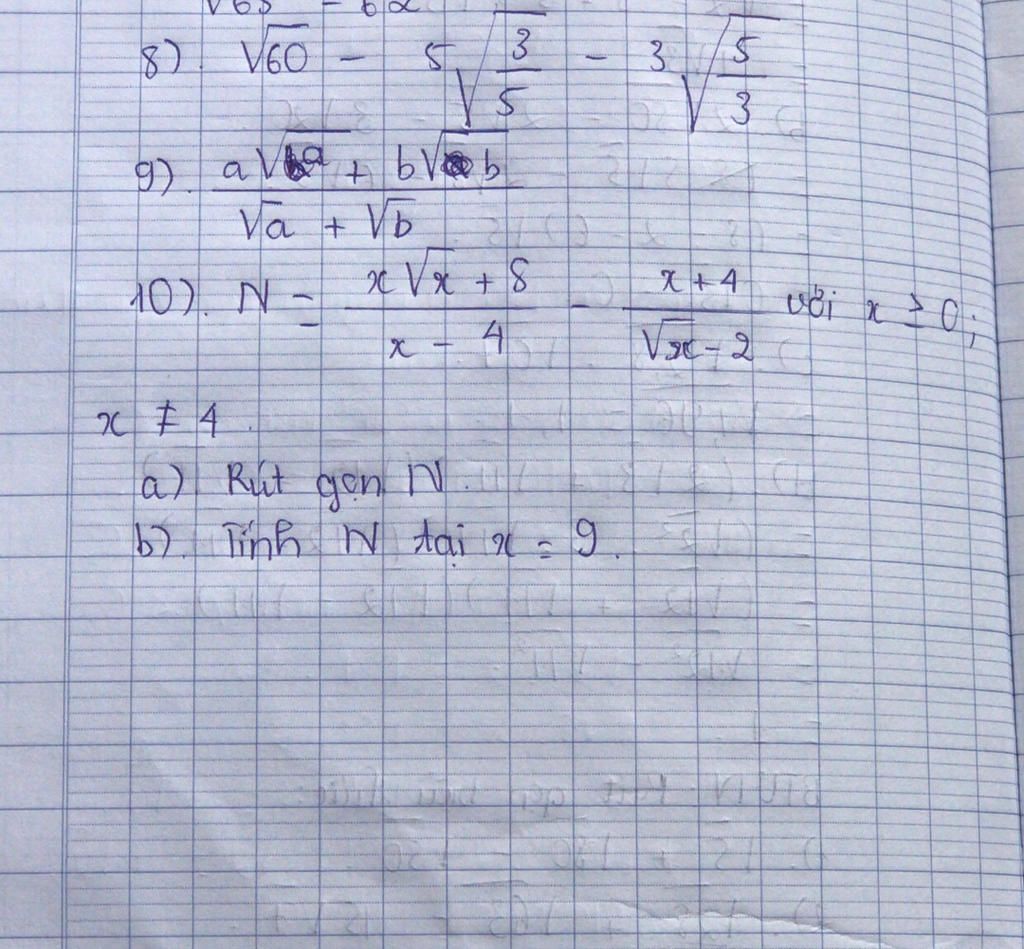 √65 - 6a
8). √60 - 5√(3/5) - 3√(5/3)
9). (a√a + b√b)/(√a + √b)
10). N = (x√x + 8)/(x - 4) - (x + 4)/(√x - 2) với x ≥ 0;
x ≠ 4.
a) Rút gọn N.
b). Tính N tại x = 9.